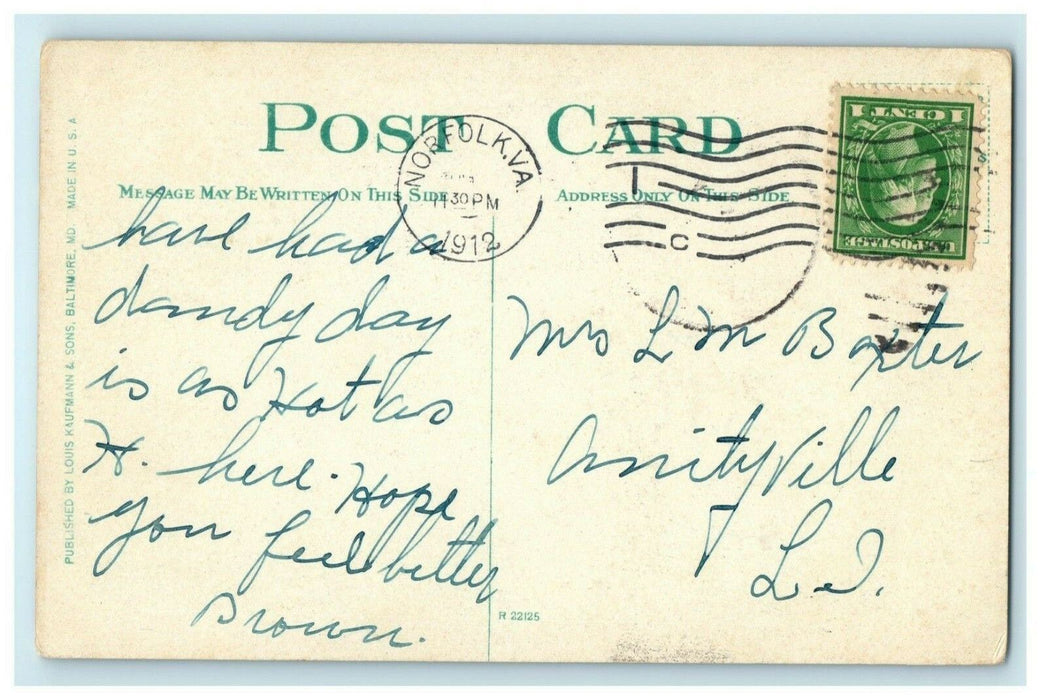 POST CARD
MESSAGE MAY BE WRITTEN ON THIS SIDE
ADDRESS ONLY ON THIS SIDE
NORFOLK, VA.
11 30 PM
1912
C
1 CENT 1
U.S. POSTAGE
have had a
dandy day
is as Hot as
H. here. Hope
you feel better
Brown.
Mrs L M Baxter
Amityville
L.I.
R 22125
PUBLISHED BY LOUIS KAUFMANN & SONS, BALTIMORE, MD. MADE IN U.S.A